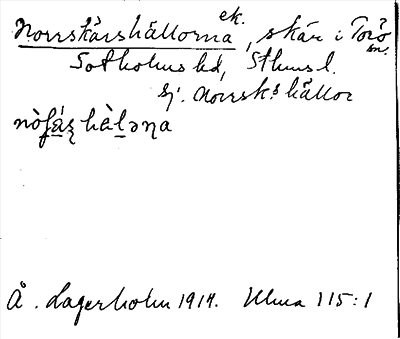 Norrskärshällorna ek., skär i Torö sn.
Sotholms hd, Sthms l.
Ej. Norrsk:s hällor
nòʃä́ʂ hä̀lǝɳa
Å. Lagerholm 1914. Ulma 115:1